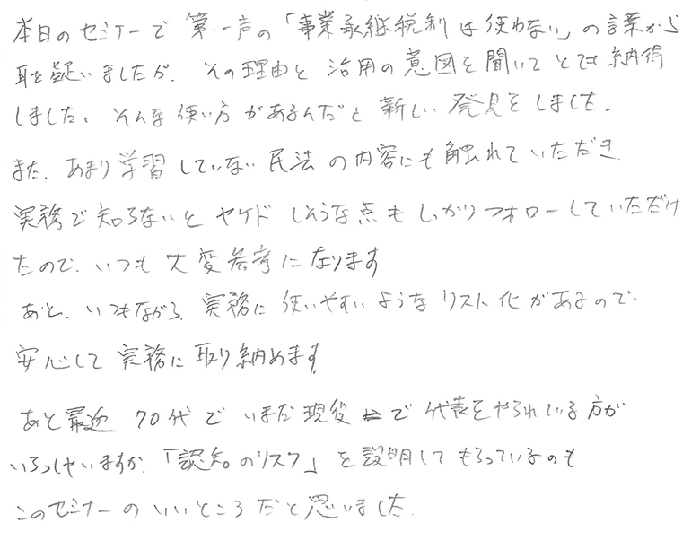 本日のセミナーで第一声の「事業承継税制は使わない」の言葉から
耳を疑いましたが、その理由と活用の意図を聞いてとても納得
しました。そんな使い方があるんだと新しい発見をしました。
また、あまり学習していない民法の内容にも触れていただき
実務で知らないとヤケドしそうな点もしっかりフォローしていただけ
たので、いつも大変参考になります
あと、いつもながら、実務に使いやすいようなリスト化があるので
安心して実務に取り納めます
あと最近70代でいまだ現役で代表をやられている方が
いらっしゃいますが「認知のリスク」を説明してもらっているのも
このセミナーのいいところだと思いました。